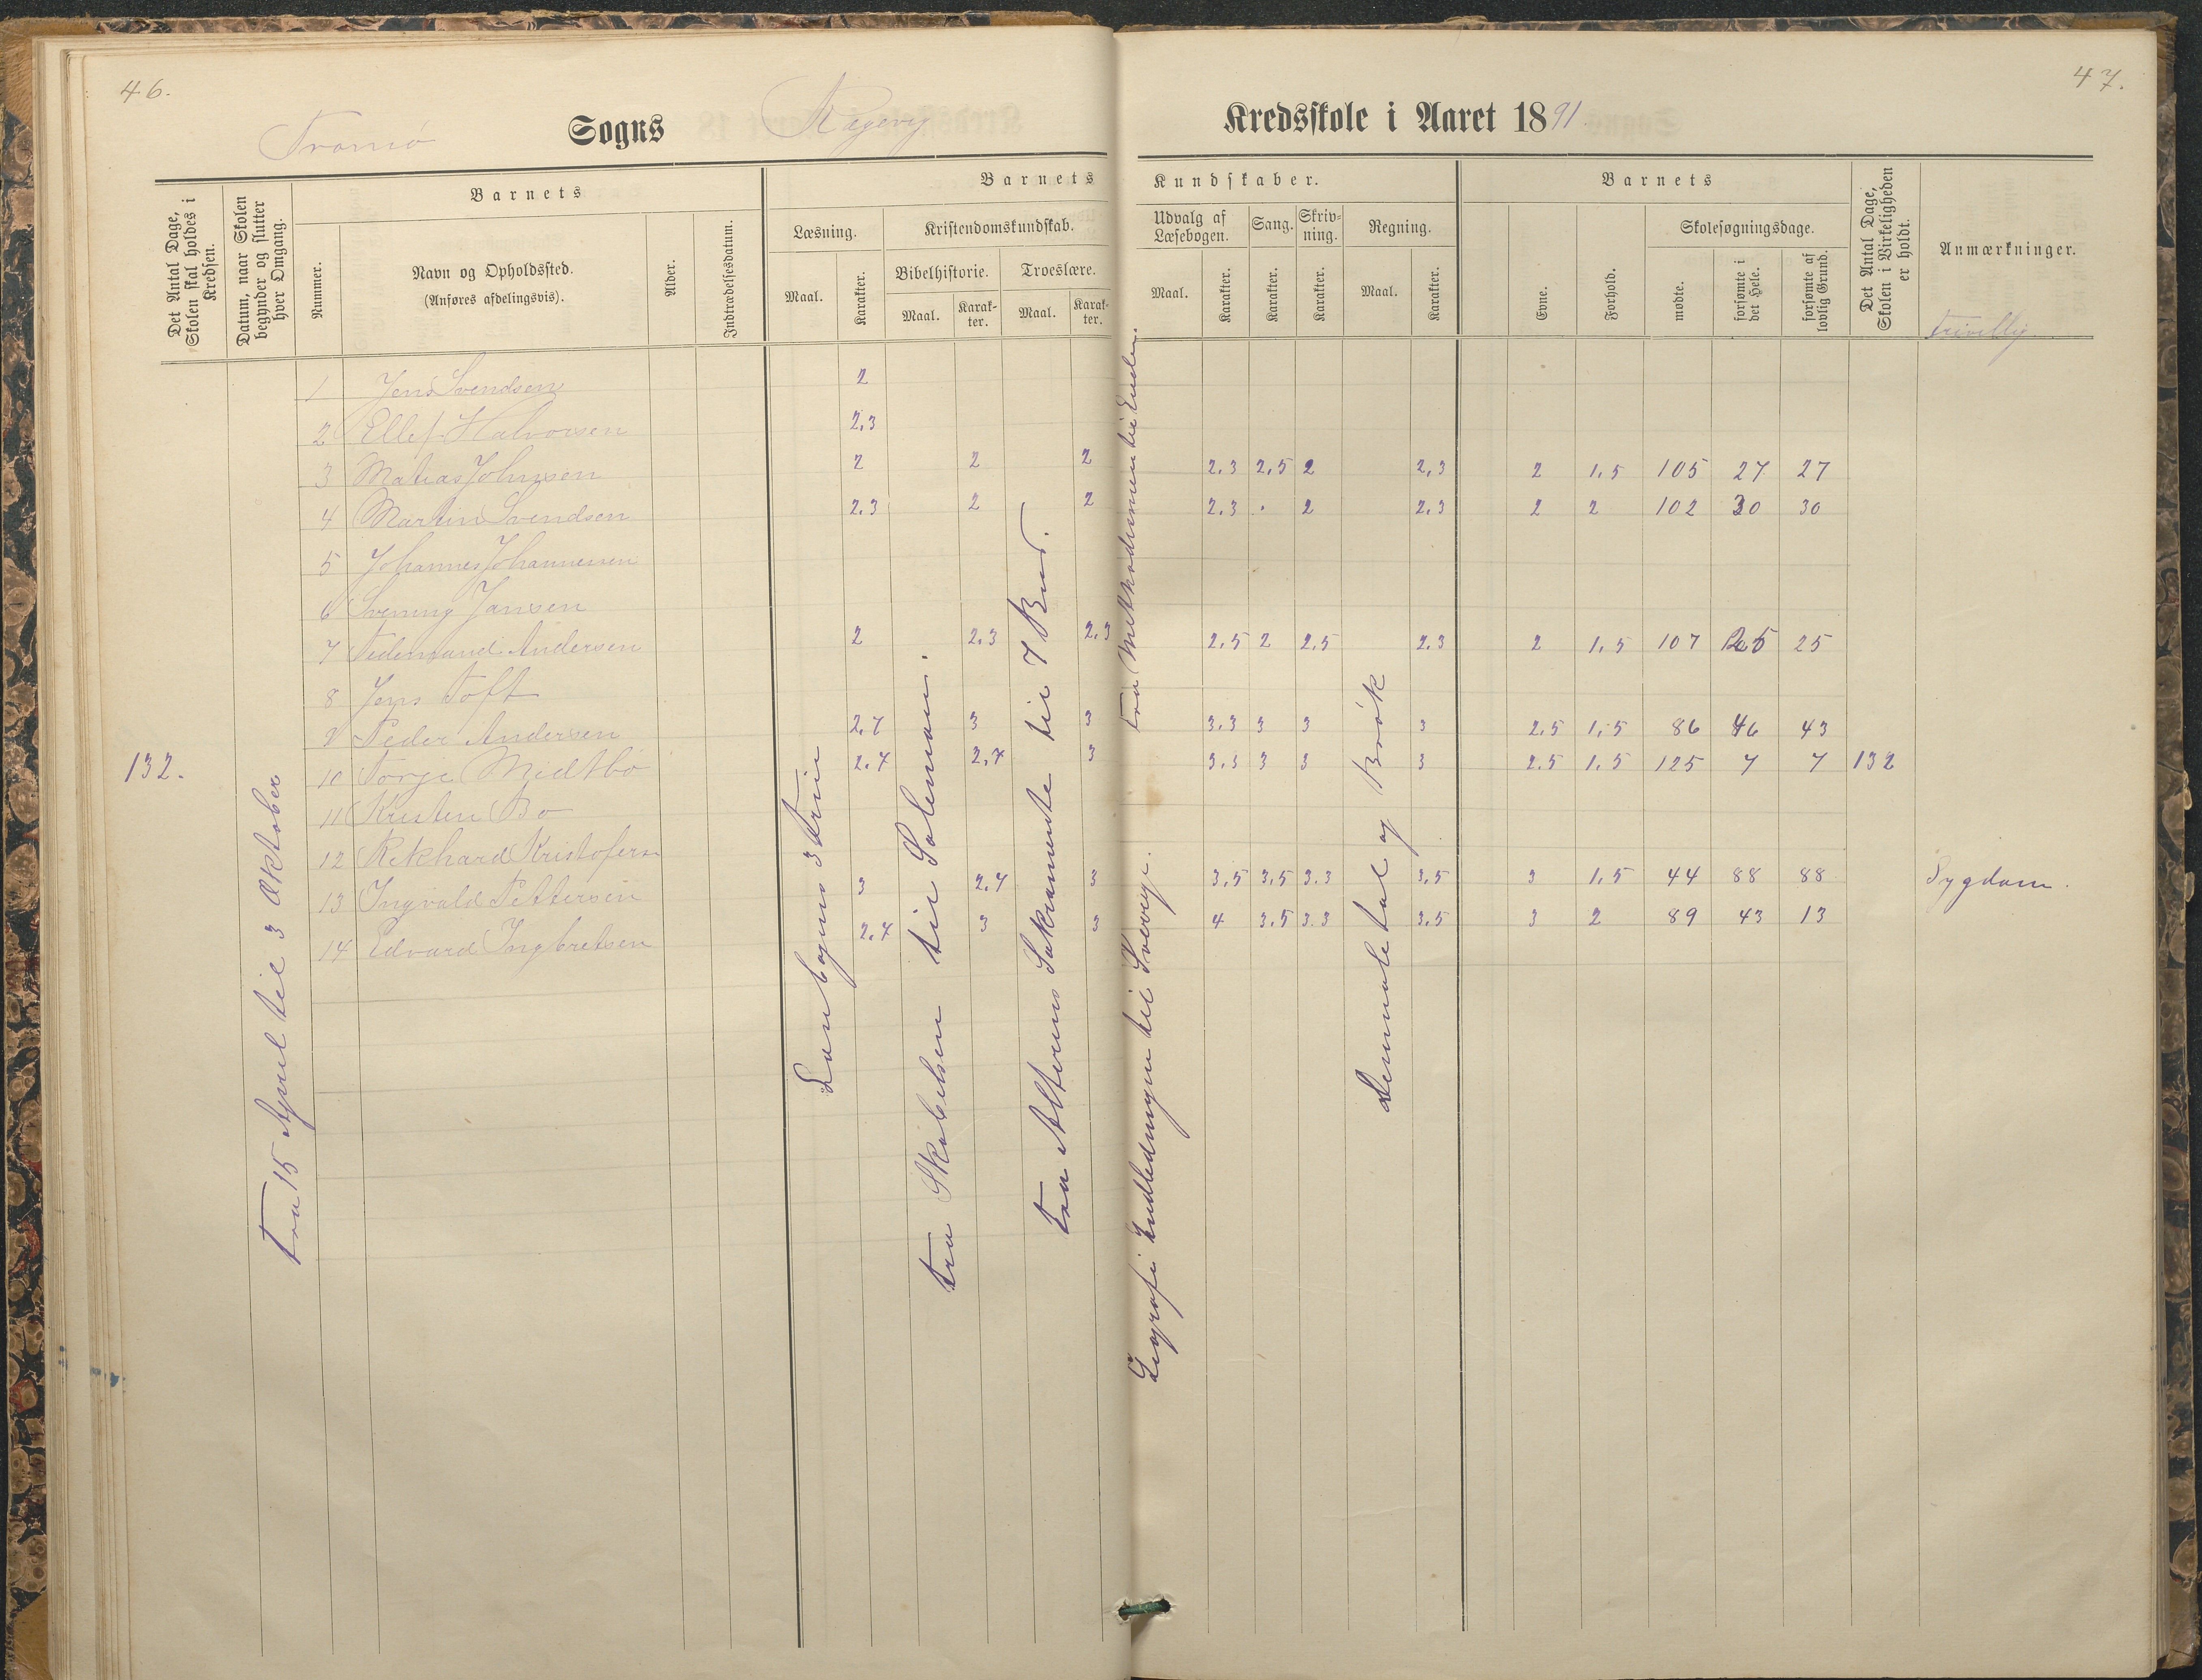 46.
47.
Tromø Sogns Kredsskole i Aaret 1891
Det Antal Dage, Skolen skal holdes i Kredsen.
Datum, naar Skolen begynder og slutter hver Omgang.
Barnets
Nummer.
Navn og Opholdssted.
(Anføres afdelingsvis).
Alder.
Indtrædelsesdatum.
Barnets Kundskaber.
Læsning.
Maal.
Karakter.
Kristendomskundskab.
Bibelhistorie.
Maal.
Karakter.
Troeslære.
Maal.
Karakter.
Udvalg af Læsebogen.
Maal.
Karakter.
Sang.
Karakter.
Skrivning.
Karakter.
Regning.
Maal.
Karakter.
Barnets
Evne.
Forhold.
Skolesøgningsdage.
mødte.
forsømte i det Hele.
forsømte af lovlig Grund.
Det Antal Dage, Skolen i Virkeligheden er holdt.
Anmærkninger.
132.
fra 15 April til 3 Oktober
1 Jens Svendsen 2
2 Ellef Halvorsen 2,3
3 Matias Johnsen 2 2 2 2,3 2,5 2 2,3 2 1,5 105 27 27
4 Martin Svendsen 2,3 2 2 2,3 . 2 2,3 2 2 102 30 30
5 Johannes Johannessen
6 Svening Jansen
7 Tidemand Andersen 2 2,3 2,3 2,5 2 2,5 2,3 2 1,5 107 25 25
8 Jens Toft
9 Peder Andersen 2,7 3 3 3,3 3 3 3 2,5 1,5 86 46 43
10 Torje Midtbø 2,7 2,7 3 3,3 3 3 3 2,5 1,5 125 7 7 132
11 Kristen Bo
12 Rikhard Kristofersn
13 Ingvald Pettersen 3 2,7 3 3,5 3,5 3,3 3,5 3 1,5 44 88 88 Sygdom.
14 Edvard Ingbretsen 2,7 3 3 4 3,5 3,3 3,5 3 2 89 43 13
fra Skabelsen til Salomon.
fra Alterens Sakramente til 7 Bud.
Geografi Indledningen til Sverige.
Desimaletal og Brøk